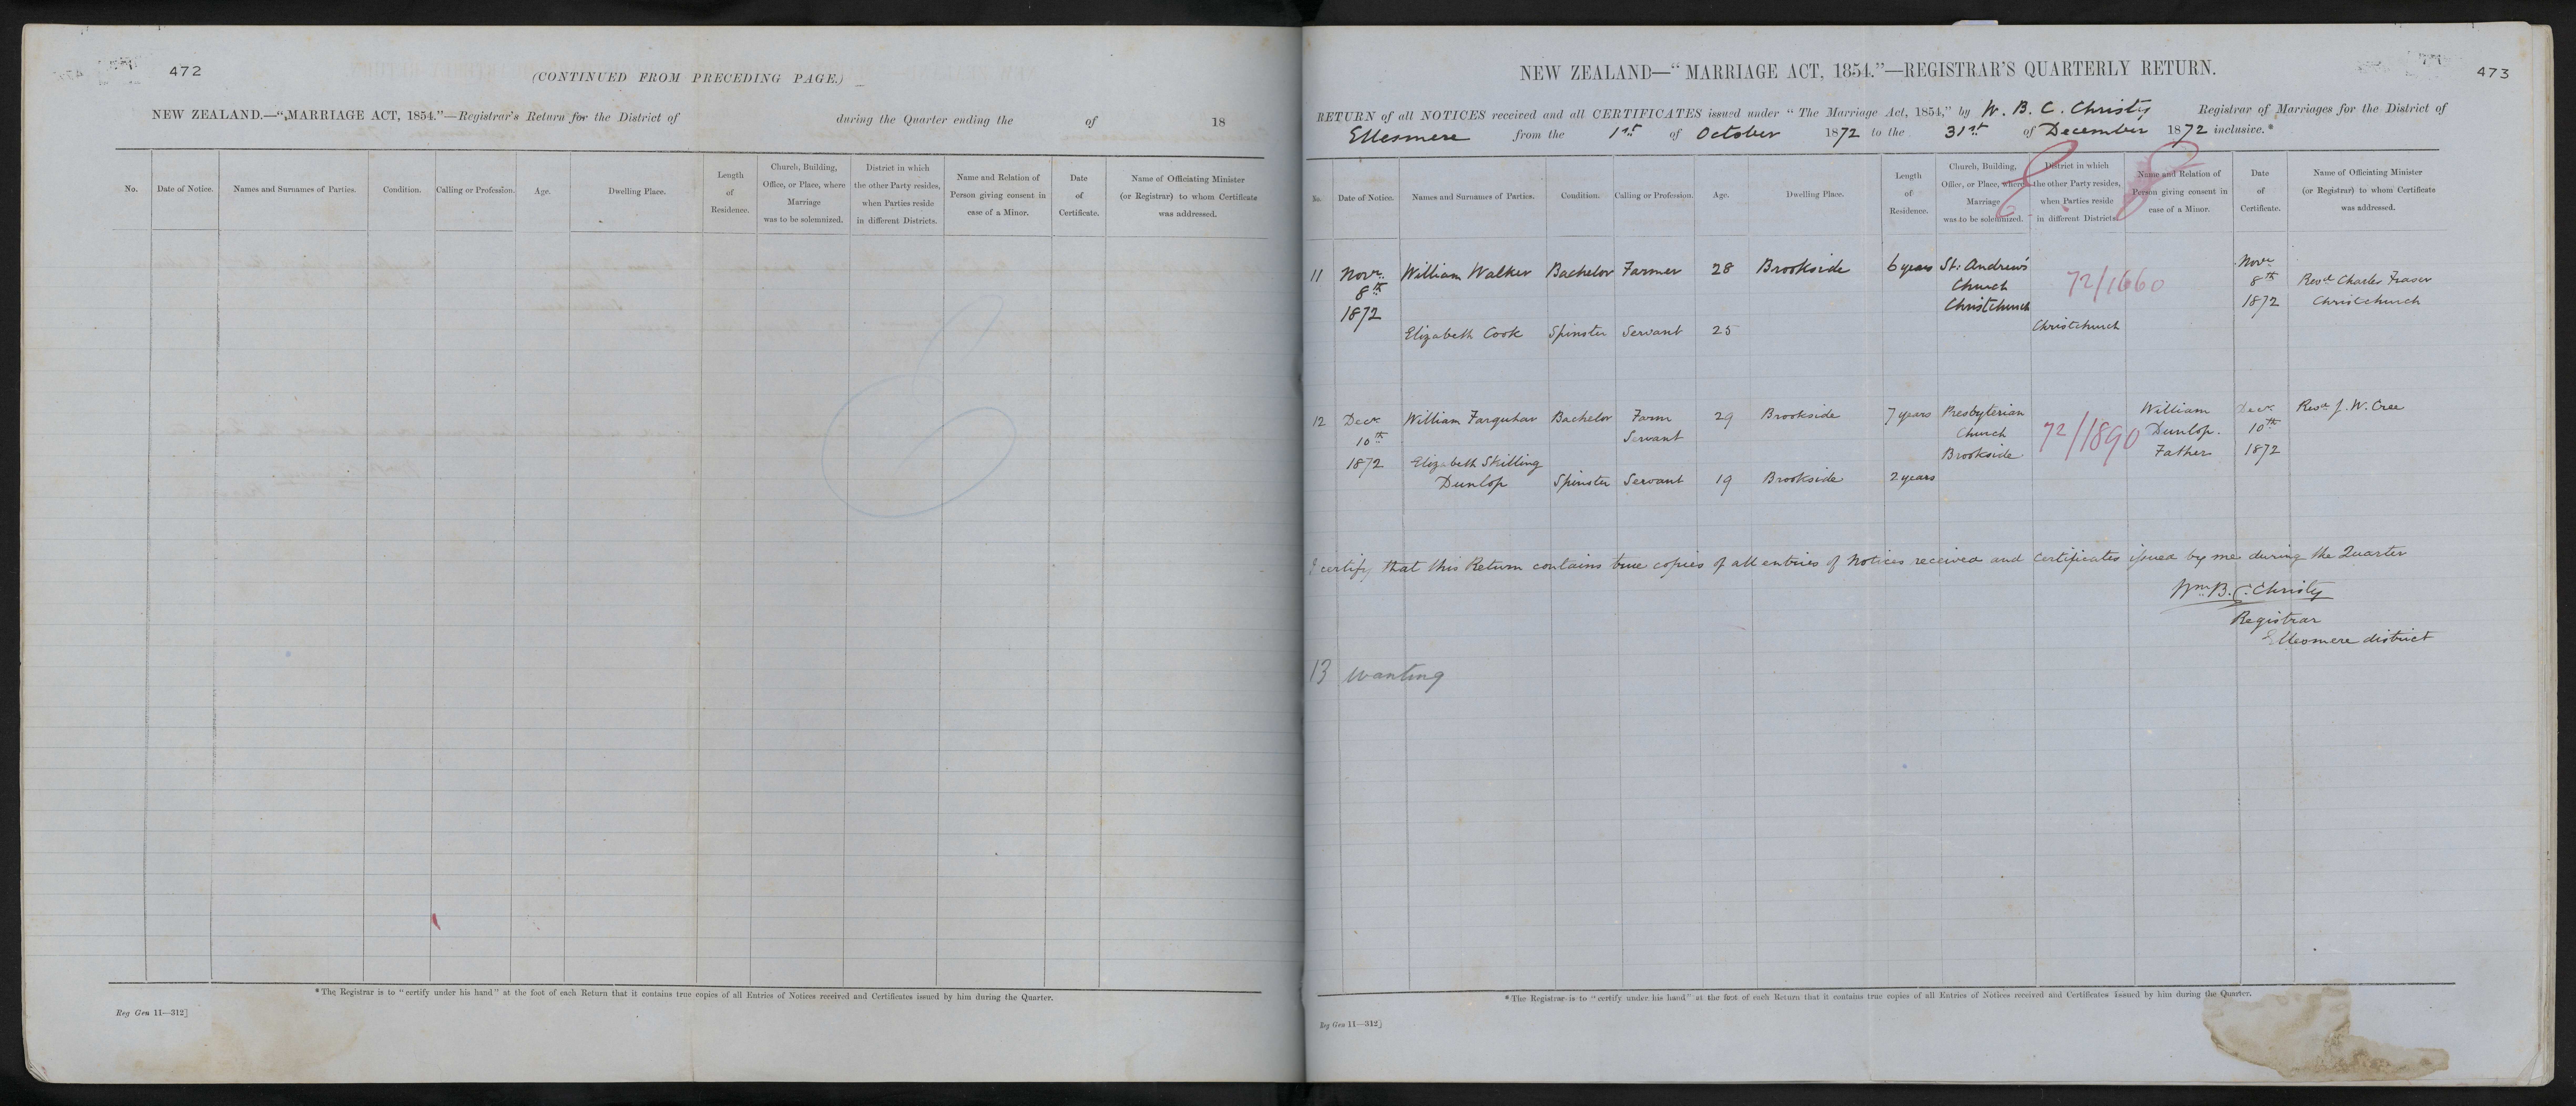 472
(CONTINUED FROM PRECEDING PAGE.)
NEW ZEALAND.—"MARRIAGE ACT, 1854."—Registrar's Return for the District of during the Quarter ending the of 18
No.
Date of Notice.
Names and Surnames of Parties.
Condition.
Calling or Profession.
Age.
Dwelling Place.
Length
of
Residence.
Church, Building,
Office, or Place, where
Marriage
was to be solemnized.
District in which
the other Party resides,
when Parties reside
in different Districts.
Name and Relation of
Person giving consent in
case of a Minor.
Date
of
Certificate.
Name of Officiating Minister
(or Registrar) to whom Certificate
was addressed.
* The Registrar is to "certify under his hand" at the foot of each Return that it contains true copies of all Entries of Notices received and Certificates issued by him during the Quarter.
Reg Gen 11—312]
473
NEW ZEALAND—"MARRIAGE ACT, 1854."—REGISTRAR'S QUARTERLY RETURN.
RETURN of all NOTICES received and all CERTIFICATES issued under "The Marriage Act, 1854," by W. B. C. Christy Registrar of Marriages for the District of
Ellesmere from the 1st of October 1872 to the 31st of December 1872 inclusive.*
No.
Date of Notice.
Names and Surnames of Parties.
Condition.
Calling or Profession.
Age.
Dwelling Place.
Length
of
Residence.
Church, Building,
Office, or Place, where
Marriage
was to be solemnized.
District in which
the other Party resides,
when Parties reside
in different Districts.
Name and Relation of
Person giving consent in
case of a Minor.
Date
of
Certificate.
Name of Officiating Minister
(or Registrar) to whom Certificate
was addressed.
11
Novr.
8th
1872
William Walker
Bachelor
Farmer
28
Brookside
6 years
St. Andrew's
Church
Christchurch
72/1660
Novr
8th
1872
Revd. Charles Fraser
Christchurch
Elizabeth Cook
Spinster
Servant
25
Christchurch
12
Decr
10th
1872
William Farquhar
Bachelor
Farm
Servant
29
Brookside
7 years
Presbyterian
Church
Brookside.
72/1890
William
Dunlop.
Father
Decr.
10th
1872
Revd. J. W. Cree
Elizabeth Skilling
Dunlop
Spinster
Servant
19
Brookside
2 years
I certify that this Return contains true copies of all entries of Notices received and certificates issued by me during the Quarter
Wm. B. C. Christy
Registrar
Ellesmere district
13 wanting
* The Registrar is to "certify under his hand" at the foot of each Return that it contains true copies of all Entries of Notices received and Certificates issued by him during the Quarter.
Reg Gen 11—312]